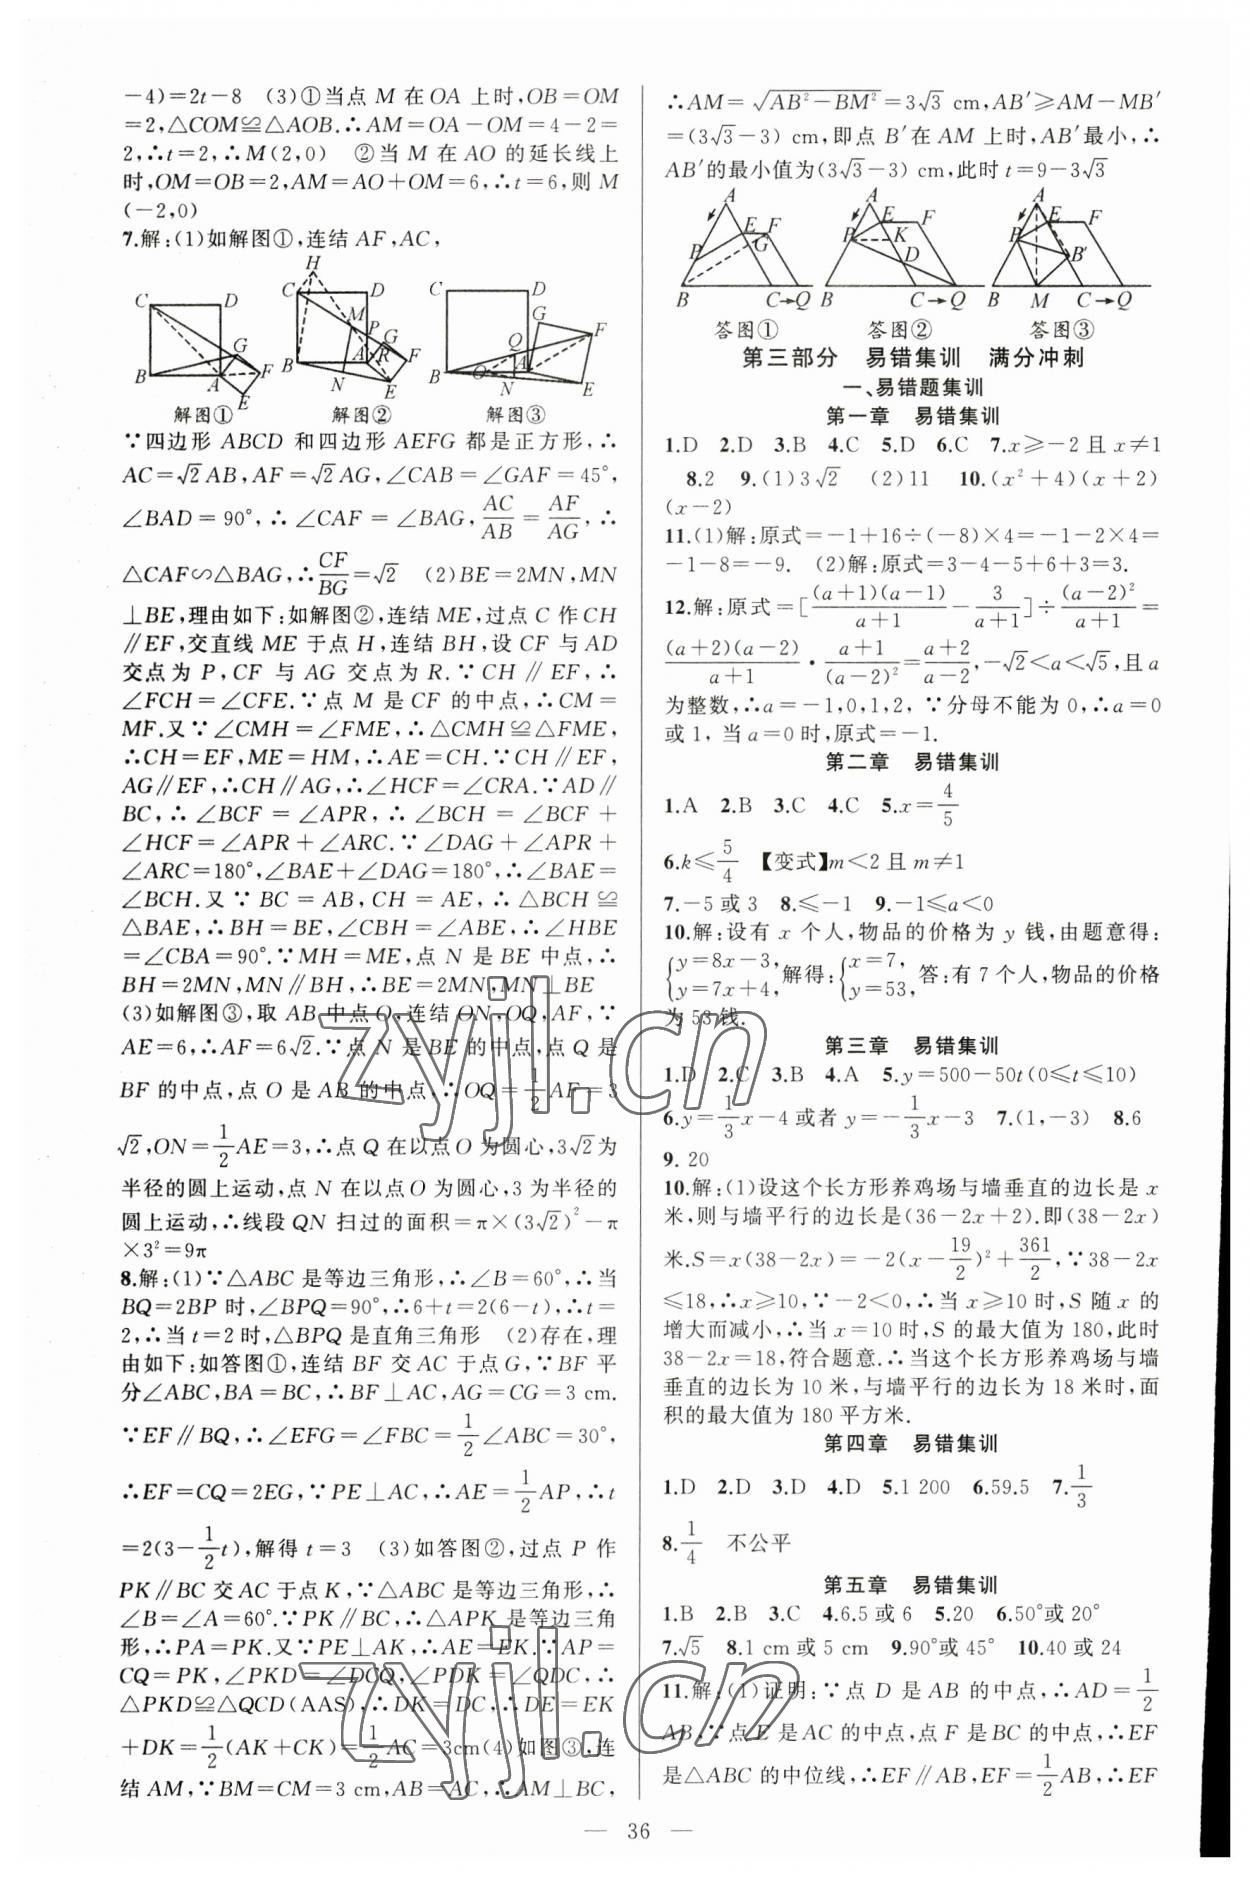 -4)=2t-8 (3)①当点 M 在OA 上时,OB=OM
=2,△COM≌△AOB.∴AM=OA-OM=4-2=
2,∴t=2,∴M(2,0) ②当 M 在 AO 的延长线上
时,OM=OB=2,AM=AO+OM=6,∴t=6,则 M
(-2,0)
7.解:(1)如解图①,连结 AF,AC,
C D G B A F E
解图①
H C D M P G B A R F N E
解图②
C D G F Q B O A N E
解图③
∵四边形 ABCD 和四边形 AEFG 都是正方形,∴
AC=√2AB,AF=√2AG,∠CAB=∠GAF=45°,
∠BAD=90°,∴∠CAF=∠BAG,AC/AB=AF/AG,∴
△CAF∽△BAG,∴CF/BG=√2 (2)BE=2MN,MN
⊥BE,理由如下:如解图②,连结 ME,过点 C 作 CH
∥EF,交直线 ME 于点 H,连结 BH,设 CF 与 AD
交点为 P,CF 与 AG 交点为 R.∵CH∥EF,∴
∠FCH=∠CFE.∵点 M 是 CF 的中点,∴CM=
MF.又∵∠CMH=∠FME,∴△CMH≌△FME,
∴CH=EF,ME=HM,∴AE=CH.∵CH∥EF,
AG∥EF,∴CH∥AG,∴∠HCF=∠CRA.∵AD∥
BC,∴∠BCF=∠APR,∴∠BCH=∠BCF+
∠HCF=∠APR+∠ARC.∵∠DAG+∠APR+
∠ARC=180°,∠BAE+∠DAG=180°,∴∠BAE=
∠BCH.又∵BC=AB,CH=AE,∴△BCH≌
△BAE,∴BH=BE,∠CBH=∠ABE,∴∠HBE
=∠CBA=90°.∵MH=ME,点 N 是 BE 中点,∴
BH=2MN,MN∥BH,∴BE=2MN,MN⊥BE
(3)如解图③,取 AB 中点 O,连结 ON,OQ,AF,∵
AE=6,∴AF=6√2.∵点 N 是 BE 的中点,点 Q 是
BF 的中点,点 O 是 AB 的中点,∴OQ=1/2AF=3
√2,ON=1/2AE=3,∴点 Q 在以点 O 为圆心,3√2为
半径的圆上运动,点 N 在以点 O 为圆心,3 为半径的
圆上运动,∴线段 QN 扫过的面积=π×(3√2)²-π
×3²=9π
8.解:(1)∵△ABC 是等边三角形,∴∠B=60°,∴当
BQ=2BP 时,∠BPQ=90°,∴6+t=2(6-t),∴t=
2,∴当 t=2 时,△BPQ 是直角三角形 (2)存在,理
由如下:如答图①,连结 BF 交 AC 于点 G,∵BF 平
分∠ABC,BA=BC,∴BF⊥AC,AG=CG=3 cm.
∵EF∥BQ,∴∠EFG=∠FBC=1/2∠ABC=30°,
∴EF=CQ=2EG,∵PE⊥AC,∴AE=1/2AP,∴t
=2(3-1/2t),解得 t=3 (3)如答图②,过点 P 作
PK∥BC 交 AC 于点 K,∵△ABC 是等边三角形,∴
∠B=∠A=60°.∵PK∥BC,∴△APK 是等边三角
形,∴PA=PK.又∵PE⊥AK,∴AE=EK.∵AP=
CQ=PK,∠PKD=∠DCQ,∠PDK=∠QDC,∴
△PKD≌△QCD(AAS),∴DK=DC,∴DE=EK
+DK=1/2(AK+CK)=1/2AC=3cm(4)如图③,连
结 AM,∵BM=CM=3 cm,AB=AC,∴AM⊥BC,
∴AM=√(AB²-BM²)=3√3 cm,AB′≥AM-MB′
=(3√3-3) cm,即点 B′在 AM 上时,AB′最小,∴
AB′的最小值为(3√3-3) cm,此时 t=9-3√3
A E F P G B C→Q
答图①
A E F P K D B C→Q
答图②
A E F P B′ B M C→Q
答图③
第三部分 易错集训 满分冲刺
一、易错题集训
第一章 易错集训
1.D 2.D 3.B 4.C 5.D 6.C 7.x≥-2 且 x≠1
8.2 9.(1)3√2 (2)11 10.(x²+4)(x+2)
(x-2)
11.(1)解:原式=-1+16÷(-8)×4=-1-2×4=
-1-8=-9. (2)解:原式=3-4-5+6+3=3.
12.解:原式=[(a+1)(a-1)/(a+1)-3/(a+1)]÷(a-2)²/(a+1)=
(a+2)(a-2)/(a+1)·(a+1)/(a-2)²=(a+2)/(a-2),-√2<a<√5,且 a
为整数,∴a=-1,0,1,2,∵分母不能为 0,∴a=0
或 1,当 a=0 时,原式=-1.
第二章 易错集训
1.A 2.B 3.C 4.C 5.x=4/5
6.k≤5/4 【变式】m<2 且 m≠1
7.-5 或 3 8.≤-1 9.-1≤a<0
10.解:设有 x 个人,物品的价格为 y 钱,由题意得:
{y=8x-3, y=7x+4, 解得:{x=7, y=53, 答:有 7 个人,物品的价格
为 53 钱.
第三章 易错集训
1.D 2.C 3.B 4.A 5.y=500-50t(0≤t≤10)
6.y=1/3x-4 或者 y=-1/3x-3 7.(1,-3) 8.6
9. 20
10.解:(1)设这个长方形养鸡场与墙垂直的边长是 x
米,则与墙平行的边长是(36-2x+2).即(38-2x)
米.S=x(38-2x)=-2(x-19/2)²+361/2,∵38-2x
≤18,∴x≥10,∵-2<0,∴当 x≥10 时,S 随 x 的
增大而减小,∴当 x=10 时,S 的最大值为 180,此时
38-2x=18,符合题意.∴当这个长方形养鸡场与墙
垂直的边长为 10 米,与墙平行的边长为 18 米时,面
积的最大值为 180 平方米.
第四章 易错集训
1.D 2.D 3.D 4.D 5.1 200 6.59.5 7.1/3
8.1/4 不公平
第五章 易错集训
1.B 2.B 3.C 4.6.5 或 6 5.20 6.50°或 20°
7.√5 8.1 cm 或 5 cm 9.90°或 45° 10.40 或 24
11.解:(1)证明:∵点 D 是 AB 的中点,∴AD=1/2
AB,∵点 E 是 AC 的中点,点 F 是 BC 的中点,∴EF
是△ABC 的中位线,∴EF∥AB,EF=1/2AB,∴EF
— 36 —
zyjl.cn
zyjl.cn